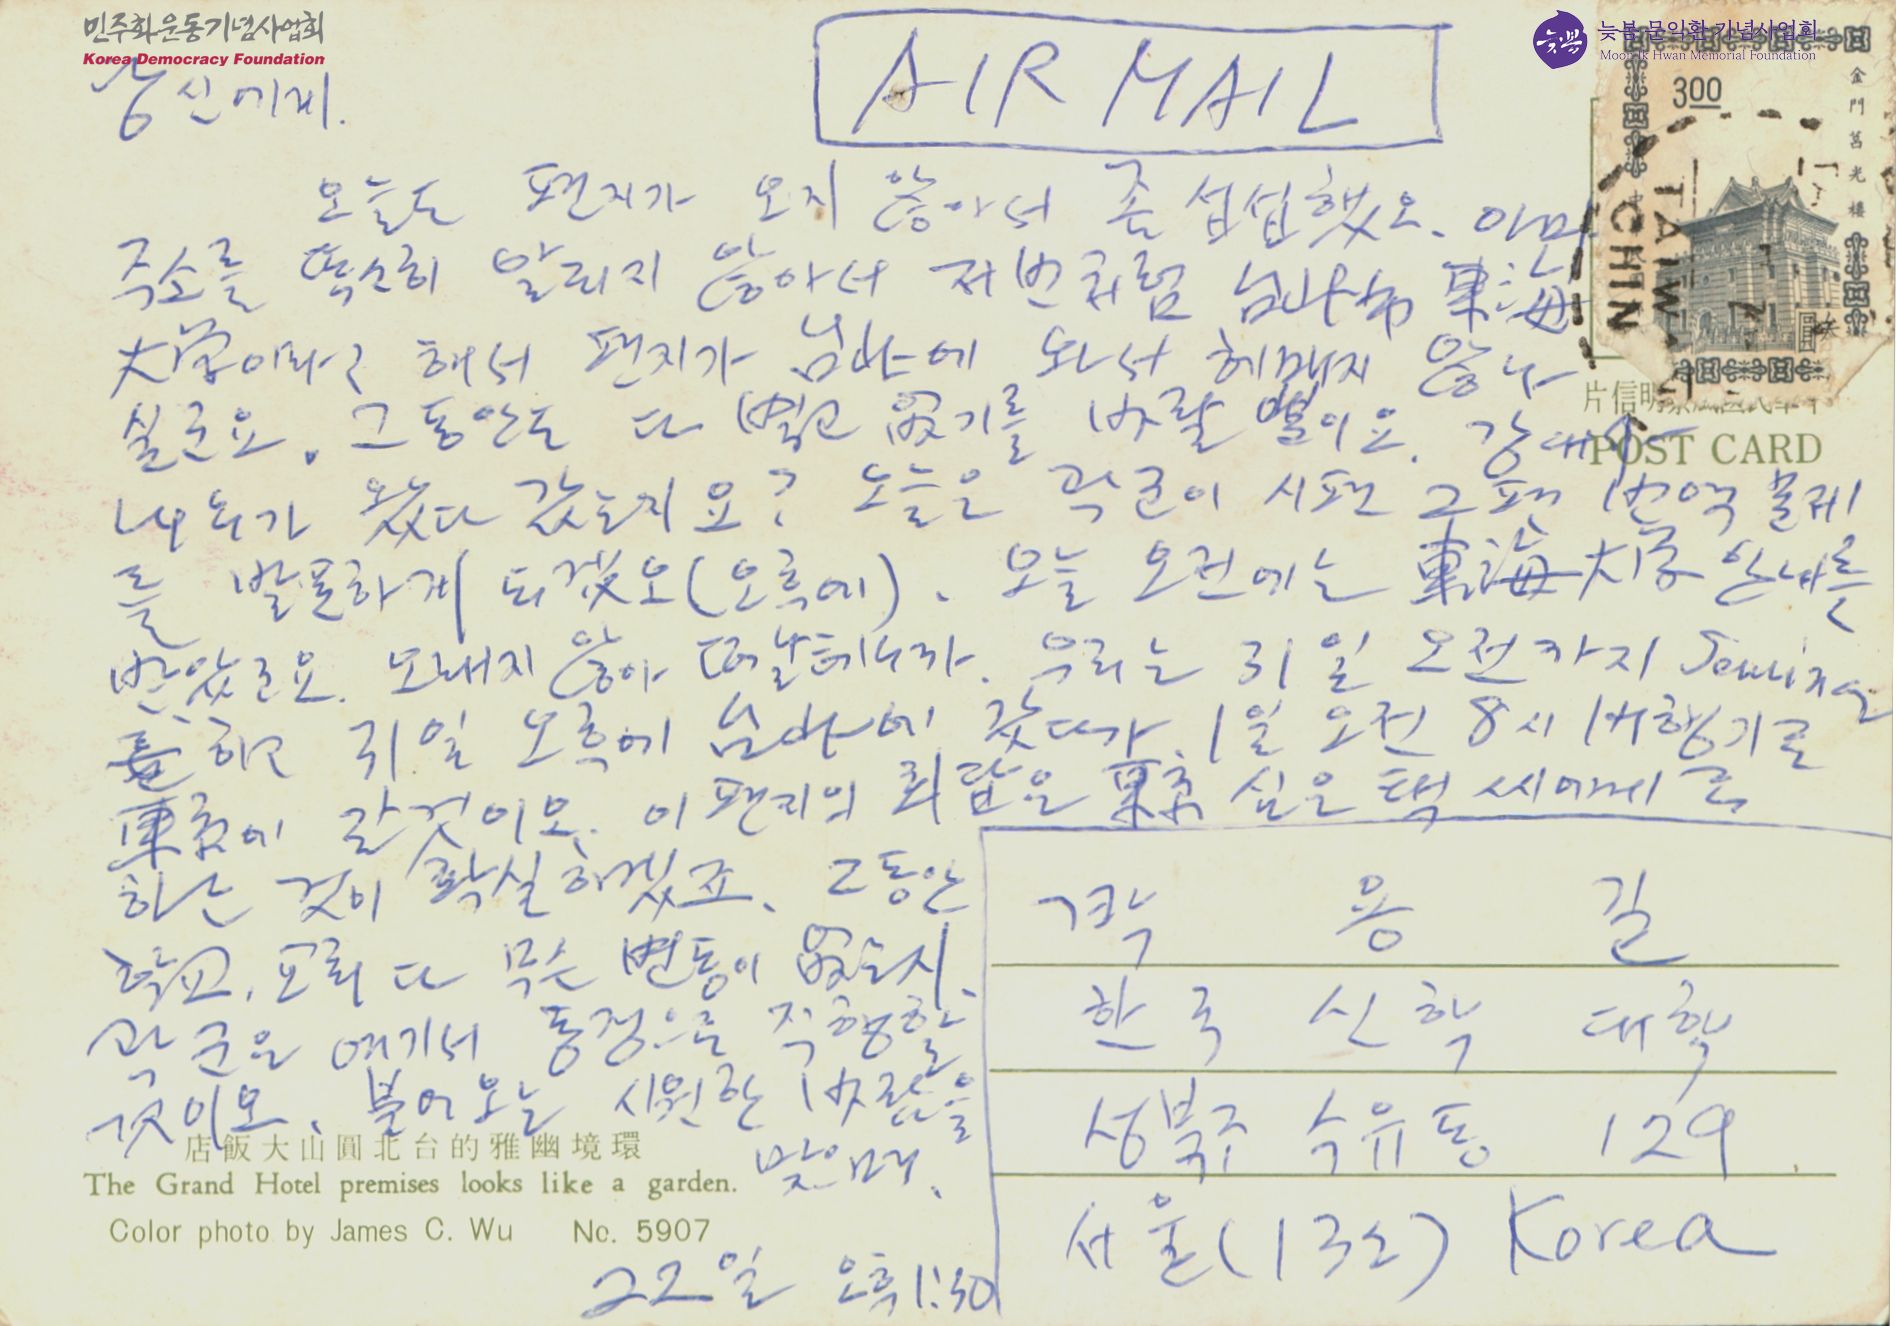 민주화운동기념사업회
Korea Democracy Foundation
늦봄 문익환 기념사업회
Moon Ik Hwan Memorial Foundation
늦봄
AIR MAIL
300
金門莒光樓
TAIW
CHIN
POST CARD
당신에게.
오늘도 편지가 오지 않아서 좀 섭섭했오. 아마
주소를 똑똑히 알리지 않아서 저번처럼 台北市 東海
大学이라고 해서 편지가 台北에 와서 헤매지 않나
싶군요. 그동안도 다 별고 없기를 바랄 뿐이오.
내외가 왔다 갔는지요? 오늘은 곽군이 시편 그편 번역 문제
를 발표하게 되겠오(오후에). 오늘 오전에는 東海大学 안내를
받았군요. 오래지 않아 떠날테니까. 우리는 31일 오전까지
하고 31일 오후에 台北에 갔다가, 1일 오전 8시 비행기로
東京에 갈 것이오. 이 편지의 회답은 東京 심은택 씨에게로
하는 것이 확실하겠죠. 그동안
학교, 교회 다 무슨 변동이 없는지.
곽군은 여기서 동경으로 직행할
것이오. 불어오는 시원한 바람을
맞으며.
22일 오후 1:30
곽 용 길
한국 신학 대학
성북구 수유동 129
서울(132) Korea
店飯大山圓北台的雅幽境環
The Grand Hotel premises looks like a garden.
Color photo by James C. Wu No. 5907